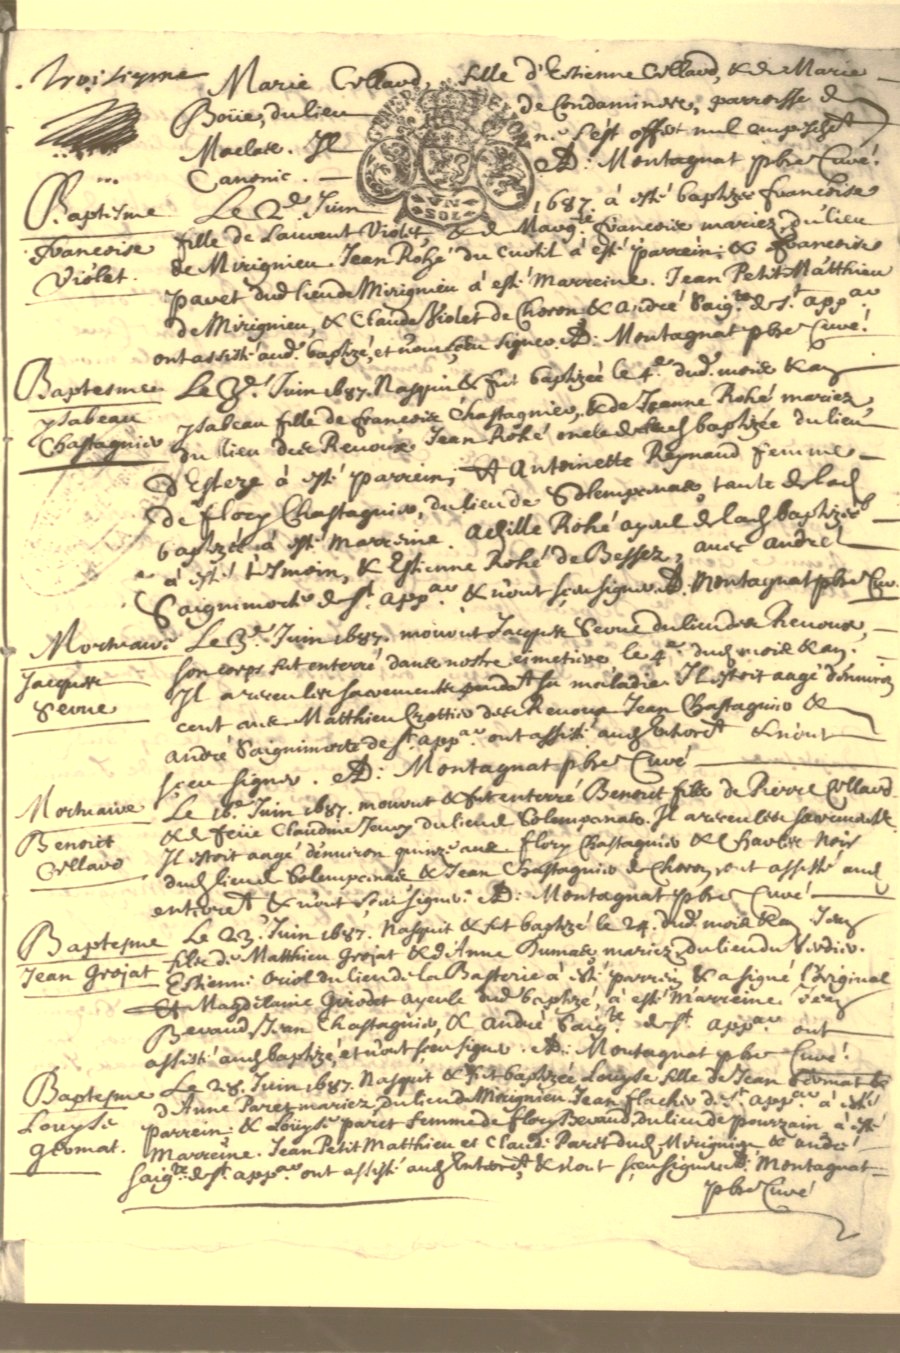 troisiesme Marie Collaud, fille d'Estienne Collaud, & de Marie
Boüie, du lieu de Condamines, parroisse de
Maclas. Il ne s'est offert nul empeschet
Canonic. D: Montagnat pbre Curé.
GENER LYON
UN
SOL
Baptesme Le 2d. Juin 1687. à esté baptizée francoise
francoise fille de Laurent Violet & de Margte. francoise mariez, du lieu
Violet. de Mirignieu. Jean Rohé du Curtil à esté parrein; & francoise
paret dud. lieu de Mirignieu à esté Marreine. Jean Petit Matthieu
de Mirignieu, & Claude Violet de Choron & andré Saigte. de st. appar
ont assisté aud. baptizé, et n'ont sçeu signer. D: Montagnat pbre Curé.
Baptesme Le 3e. Juin 1687. Nasquit & fut baptizée le 4e. dud. mois & an
ysabeau ysabeau fille de francois Chastagnier, & de Jeanne Rohé mariez
Chastagnier du lieu des Renoux. Jean Rohé oncle de lad. baptizée du lieu
d'Esteze à esté parrein; Et Antoinette Reynaud femme
de flory Chastagnier, du lieu de Solempcinas, tante de lad.
baptizée à esté marreine. achille Rohé ayeul de lad. baptizée
à esté tesmoin, & Estienne Rohé de Bessez, avec andré
Saignimorte de st. appar & n'ont sçeu signer. D. Montagnat pbre Cur.
Mortuaire Le 3e. Juin 1687. mourut Jacques Seruë du lieu des Renoux,
Jacques son corps fut enterré dans nostre cimetiere le 4e. dud. mois & an.
Seruë Il a receu les sacrements pendat sa maladie. Il estoit aagé d'environ
cent ans Matthieu Crottier des Renoux Jean Chastagnier &
André Saignimorte de st. appar ont assisté aud. Enterret & n'ont
sçeu signer. D: Montagnat pbre Curé
Mortuaire Le 16e. Juin 1687. mourut & fut enterré Benoit fils de Pierre Collaud
Benoict & de feue Claudine Jeury du lieu de Solempcinas. Il a receu les sacrements.
Collaud Il estoit aagé d'environ quinze ans flory Chastagnier & Charles Noir
dud. lieu de Solempcinas & Jean Chastagnier de Choron, ont assisté aud.
enterret & n'ont sceu signer. D: Montagnat pbre Curé
Baptesme Le 23. Juin 1687. Nasquit & fut baptizé le 24. dud. mois & an Jean
Jean Grojat fils de Matthieu Grojat & d'Anne Dumas, mariez, du lieu du Verdier.
Estienne oriol du lieu de la Basterie à esté parrein & a signé l'original
Et Magdelaine Girodet ayeule dud. baptizé, à esté Marreine. Jean
Beraud, Jean Chastagnier, & andré Saigte. de st. appar ont
assisté aud. baptizé, et n'ont sceu signer. D: Montagnat pbre Curé.
Baptesme Le 28. Juin 1687. Nasquit & fut baptizée Louyse fille de Jean Gromat &
Louyse d'Anne Paret mariez, du lieu de Mirignieu Jean flachier de st. appar à esté
Gromat. parrein: & Louyse paret femme de flory Beraud, du lieu de pourzain à esté
Marreine. Jean Petit Matthieu et Claude Paret dud. Mirignieu & andré
Saigte. de st. appar ont assisté aud. Enterret, & n'ont sçeu signer. D: Montagnat
pbre Curé